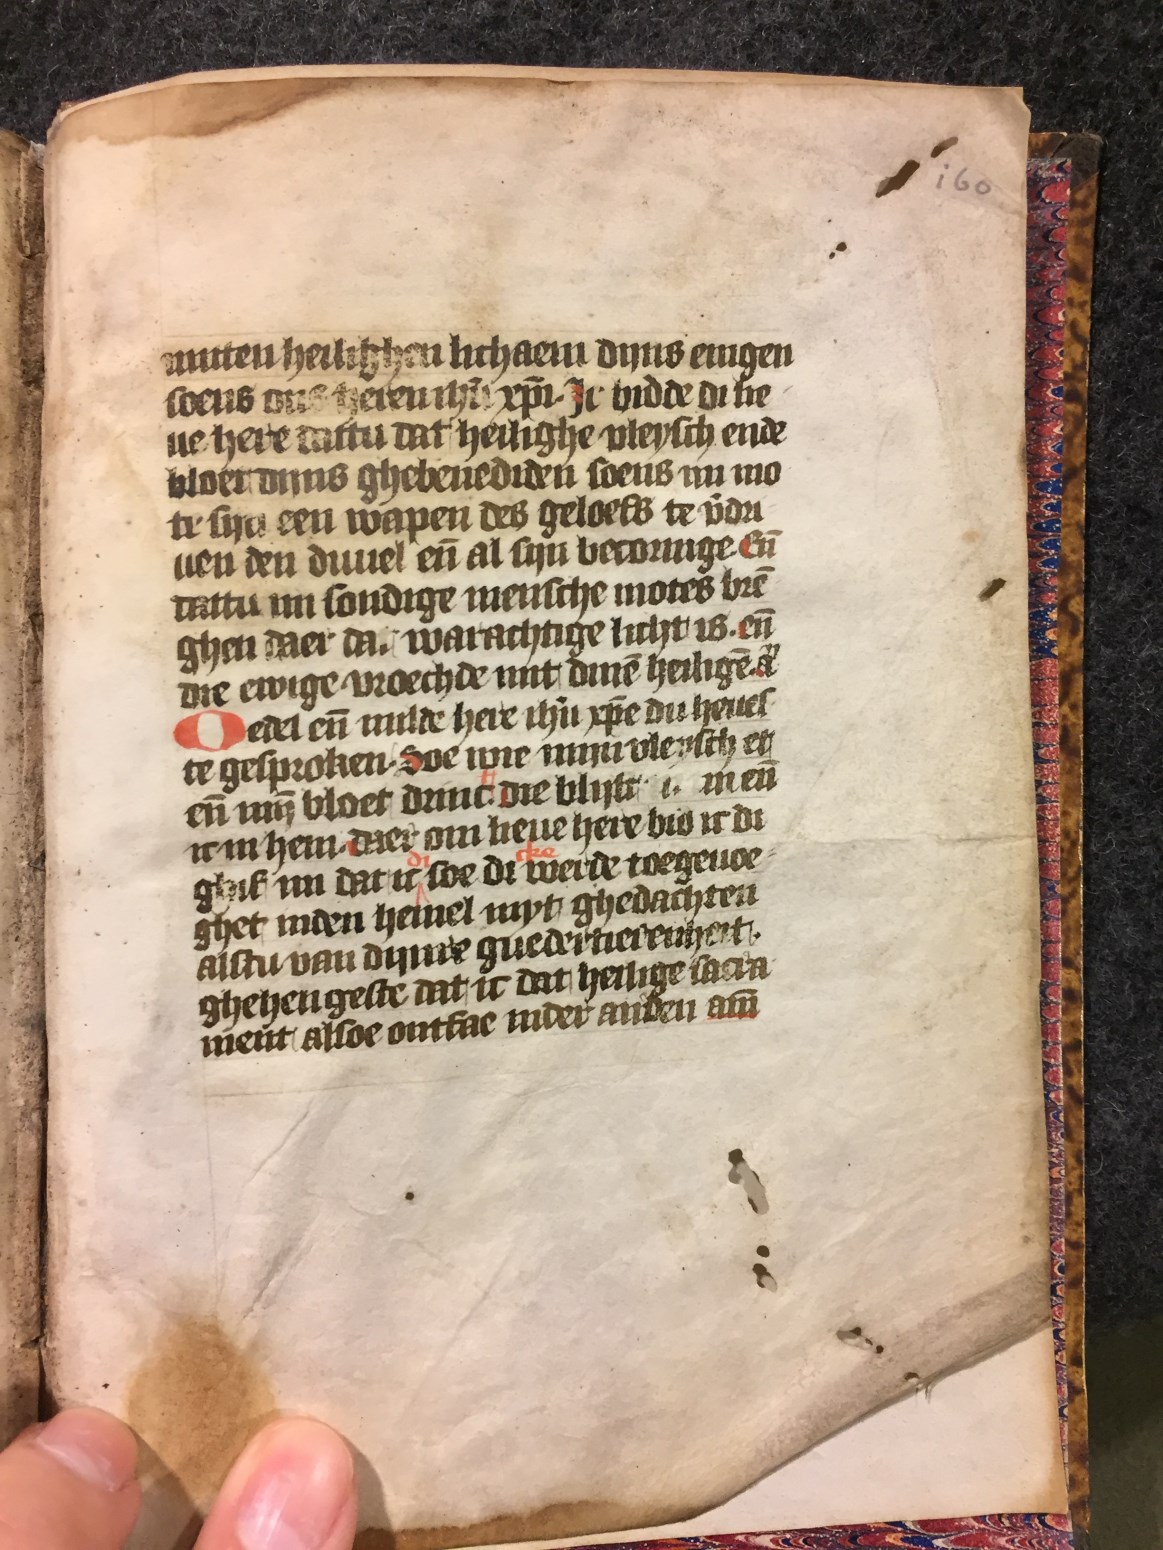 i60
mitten heilighen lichaem dijns enigen
soens ons heren ihū xp̄i. Ic bidde di lie
ue here dattu dat heilighe vleysch ende
bloet dijns ghebenediden soens mi mo
te sijn een wapen des geloefs te v̄dri
uen den duuel eñ al sijn becoringe. Eñ
dattu mi sondige mensche motes brē
ghen daer dat warachtige licht is. eñ
die ewige vroechde mit dinē heiligē. a
O edel eñ milde here ihū xp̄e du heues
te gesproken. Soe wie mijn vleysch et
eñ mijn bloet drinct. Die blijft in eñ
ic in hem. daer om lieue here bid ic di
ghif mi dat ic di soe dicke werde toegeuoe
ghet inden hemel myt ghedachten
alstu van dijnre guedertierenheit.
ghehengeste dat ic dat heilige sacra
ment alsoe ontfae inder anden am̄